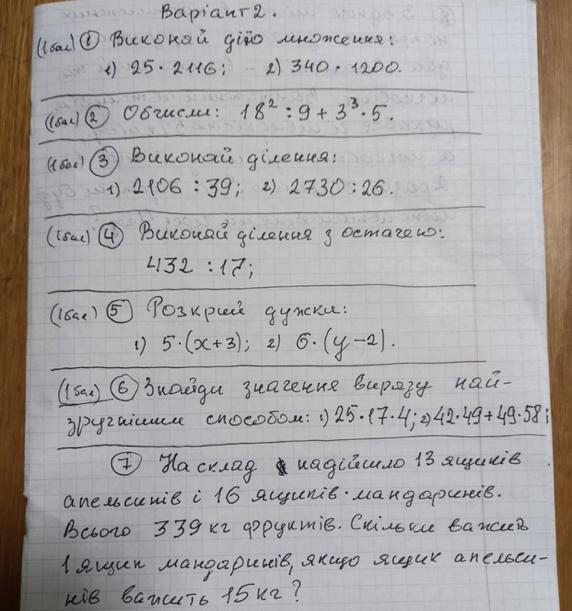 Варіант 2.
(1 бал) 1 Виконай дію множення:
1) 25 · 2116; 2) 340 · 1200.
(1 бал) 2 Обчисли: 18² : 9 + 3³ · 5.
(1 бал) 3 Виконай ділення:
1) 2106 : 39; 2) 2730 : 26.
(1 бал) 4 Виконай ділення з остачею:
432 : 17;
(1 бал) 5 Розкрий дужки:
1) 5·(x+3); 2) 6·(y-2).
(1 бал) 6 Знайди значення виразу най-
зручнішим способом: 1) 25·17·4; 2) 42·49+49·58;
7 На склад надійшло 13 ящиків
апельсинів і 16 ящиків мандаринів.
Всього 339 кг фруктів. Скільки важить
1 ящик мандаринів, якщо ящик апельси-
нів важить 15 кг?